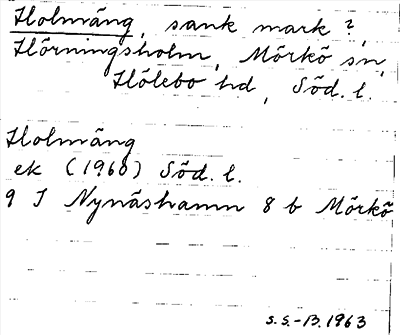 Holmäng, sank mark?,
Hörningsholm, Mörkö sn,
Hölebo hd, Söd. l.
Holmäng
ek (1960) Söd. l.
9 I Nynäshamn 8 b Mörkö
S.S.-B. 1963